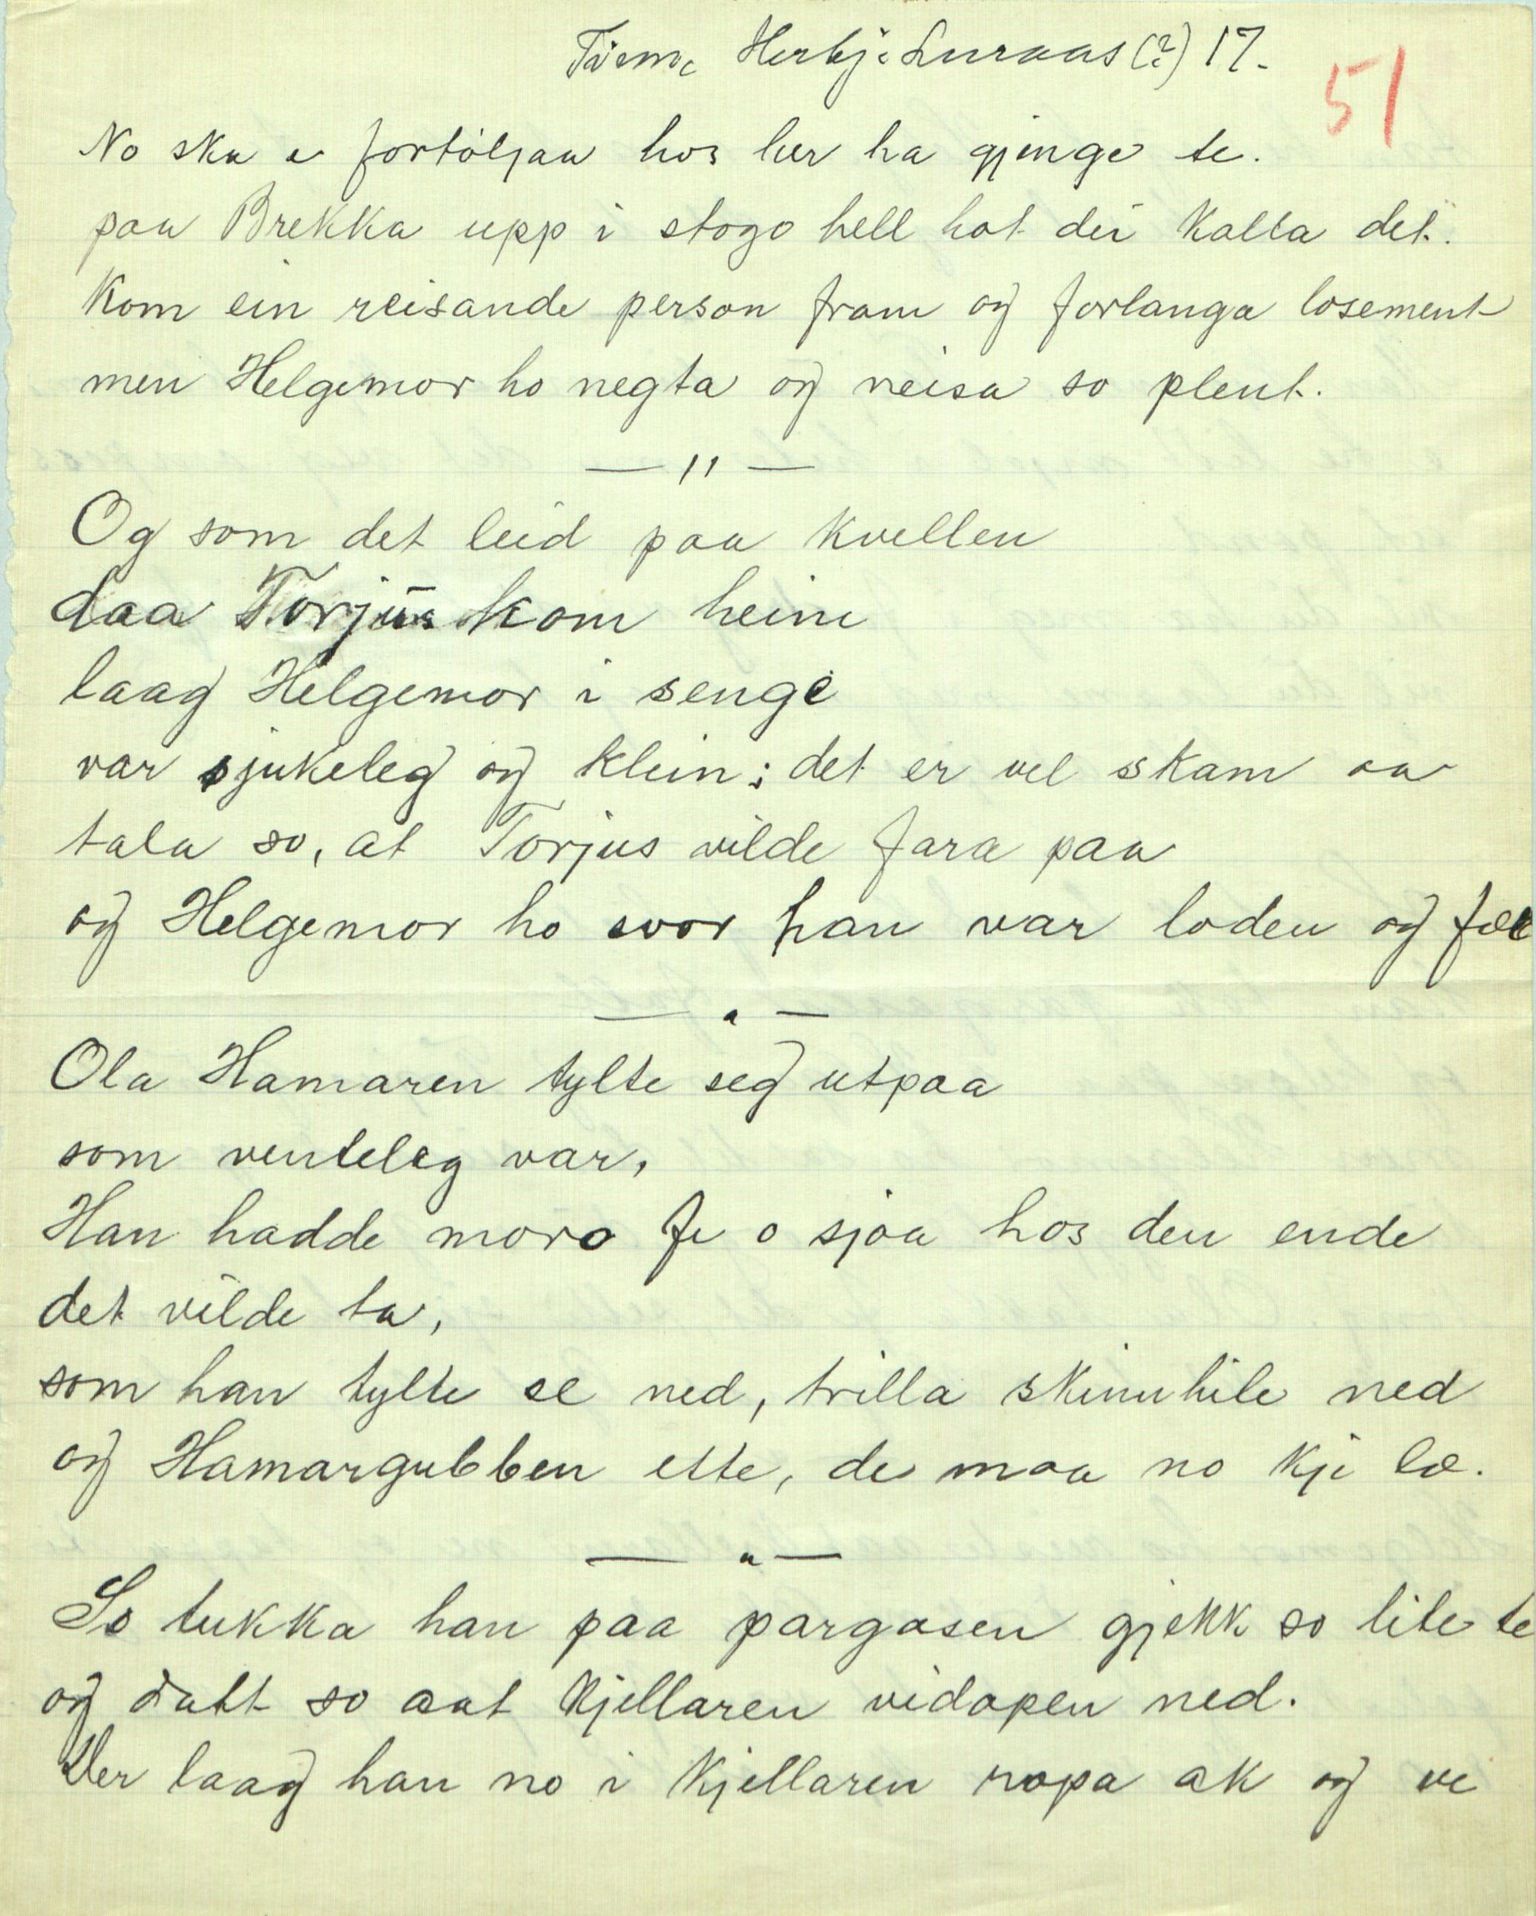 Herbj. Luraas (?) 17.
51
No ska e fortöljaa hos her ha gjenge te.
paa Brekka upp i stogo hell hot dei kalla det.
Kom ein reisande person fram og forlanga losement
men Helgemor ho negta og neisa so plent.
— " —
Og som det leid paa kvellen
daa Torjus kom heim
laag Helgemor i senge
var sjukeleg og klein; det er vel skam aa
tala so, at Torjus vilde fara paa
og Helgemor ho svor han var loden og fæl
— " —
Ola Hamaren tylte seg utpaa
som venteleg var,
Han hadde moro fe o sjaa hos den ende
det vilde ta,
som han tylte se ned, trilla skinnhile ned
og Hamargubben ette, de maa no kje læ.
— " —
So lukka han paa pargasen gjekk so lite te
og datt so aat kjellaren vidopen ned.
Der laag han no i kjellaren ropa ak og ve